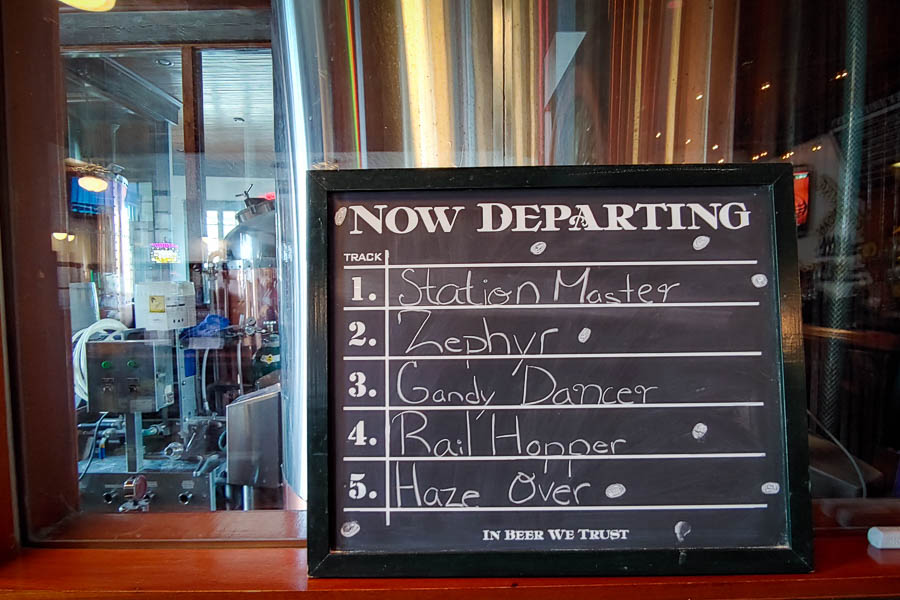 NOW DEPARTING
TRACK
1. Station Master
2. Zephyr
3. Gandy Dancer
4. Rail Hopper
5. Haze Over
IN BEER WE TRUST